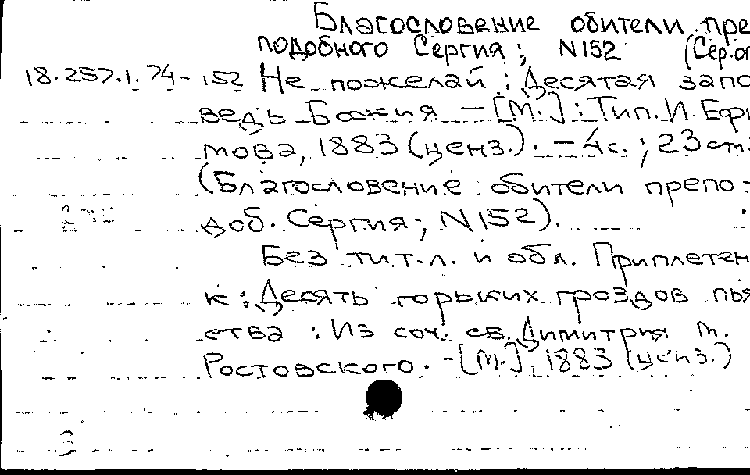 Благословение обители пре
подобного Сергия; N152 (Сер.ог
18.257.1.74-152 Не пожелай: Десятая запо
ведь Божия - [М.]: Тип. И. Ефи
мова, 1883 (ценз.). - 4с.; 23см.
(Благословение обители препо
доб. Сергия; N152).
Без тит.л. и обл. Приплетен
к: Десять горьких гроздов пья
ства: Из соч. св. Димитрия м.
Ростовского. - [М.], 1883 (ценз.)